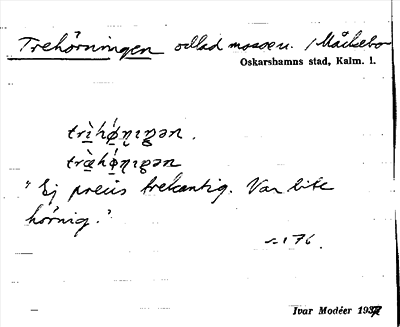 Trehörningen odlad mossen. / Måckebo
Oskarshamns stad, Kalm. l.
trìhǿ̱ṇıŋən.
træ̀hǿ̱ṇıŋən
"Ej precis trekantig. Var lite
hörnig."
s. 176.
Ivar Modéer 1937